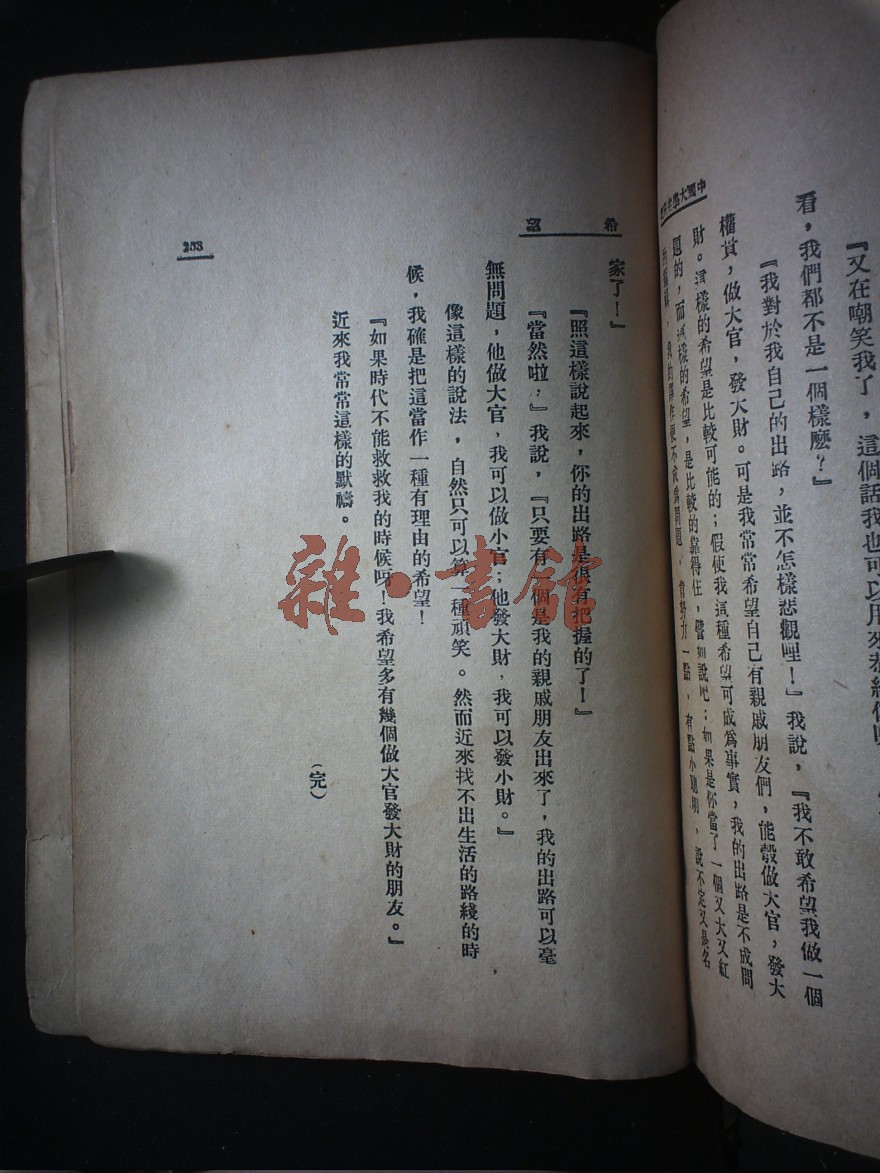 『又在嘲笑我了，這個話我也可以用來恭維你
看，我們都不是一個樣麽？』
『我對於我自己的出路，並不怎樣悲觀哩！』我說，『我不敢希望我做一個
權貴，做大官，發大財。可是我常常希望自己有親戚朋友們，能彀做大官，發大
財。這樣的希望是比較可能的；假使我這種希望可成爲事實，我的出路是不成問
題的，而這樣的希望，是比較的靠得住，譬如說吧：如果是你當了一個又大又紅
我的工作便不成爲問題，肯努力一點，有點小聰明，說不定又是名
中國大學生日記
希望
家了！』
『照這樣說起來，你的出路是很有把握的了！』
『當然啦，』我說，『只要有一個是我的親戚朋友出來了，我的出路可以毫
無問題，他做大官，我可以做小官；他發大財，我可以發小財。』
像這樣的說法，自然只可以算一種頑笑。然而近來找不出生活的路綫的時
候，我確是把這當作一種有理由的希望！
『如果時代不能救救我的時候呀！我希望多有幾個做大官發大財的朋友。』
近來我常常這樣的默禱。
（完）
253
雜·書館